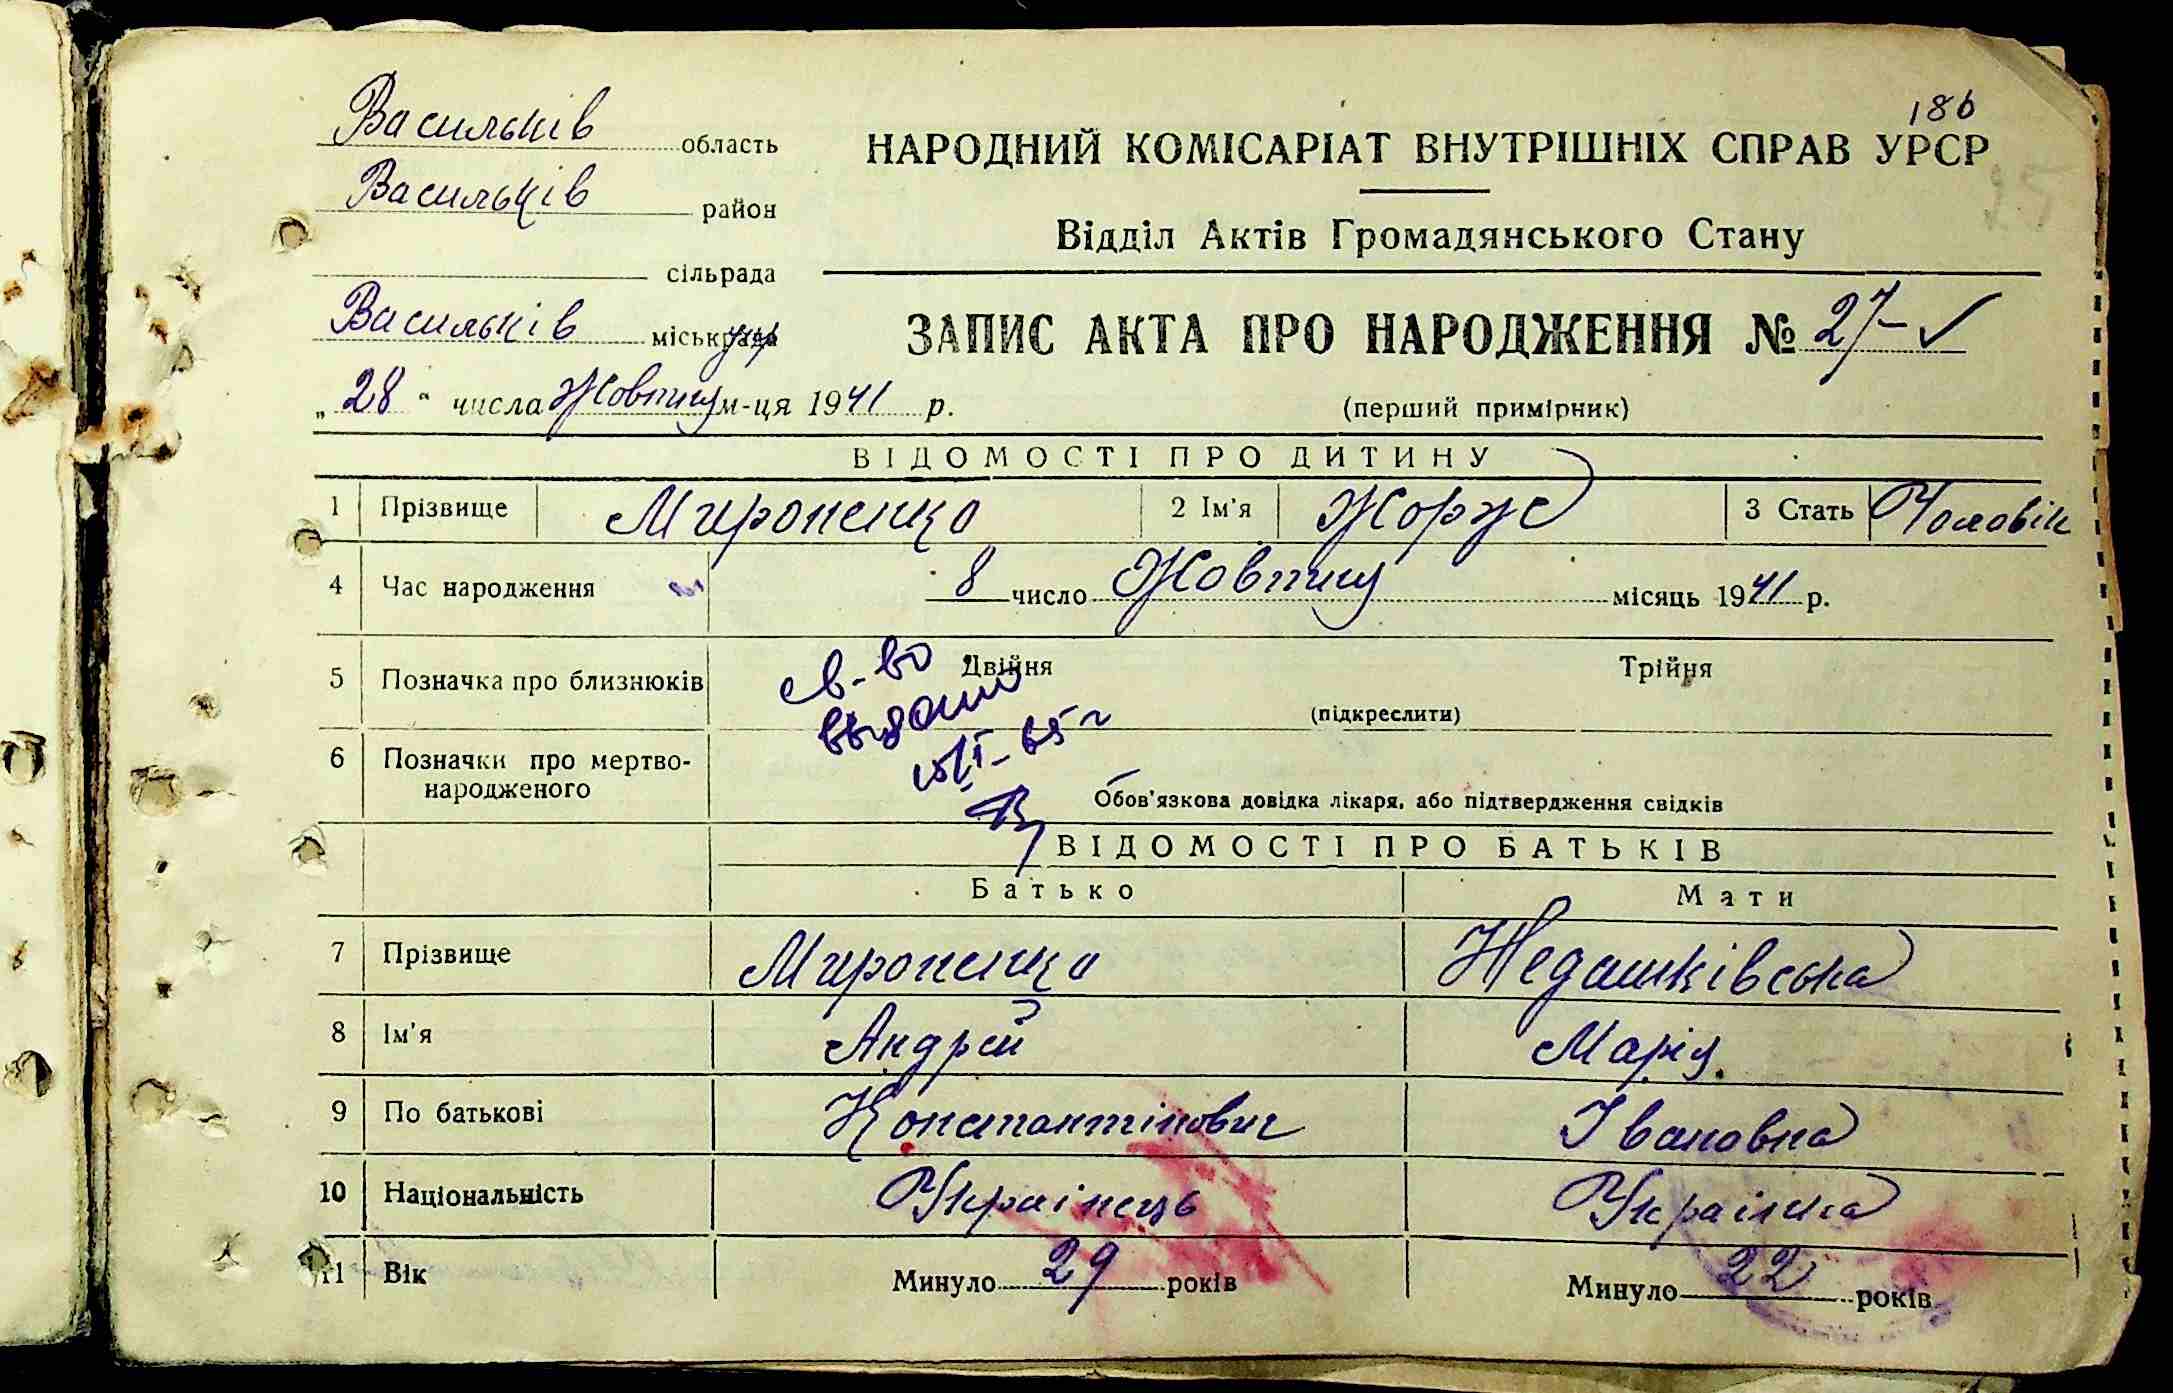 186
Васильків область
НАРОДНИЙ КОМІСАРІАТ ВНУТРІШНІХ СПРАВ УРСР
Васильків район
Відділ Актів Громадянського Стану
сільрада
Васильків міськрада
ЗАПИС АКТА ПРО НАРОДЖЕННЯ № 27
„28“ числа Жовтня м-ця 1941 р.
(перший примірник)
ВІДОМОСТІ ПРО ДИТИНУ
1 Прізвище Мироненко 2 Ім'я Жорж 3 Стать Чоловік
4 Час народження 8 число Жовтня місяць 1941 р.
5 Позначка про близнюків Двійня Трійня
(підкреслити)
св-во
выдано
6 Позначки про мертво-
народженого
Обов'язкова довідка лікаря, або підтвердження свідків
ВІДОМОСТІ ПРО БАТЬКІВ
Батько Мати
7 Прізвище Мироненко Недашківська
8 Ім'я Андрій Марія
9 По батькові Константінович Івановна
10 Національність Украінець Украінка
11 Вік Минуло 29 років Минуло 22 років